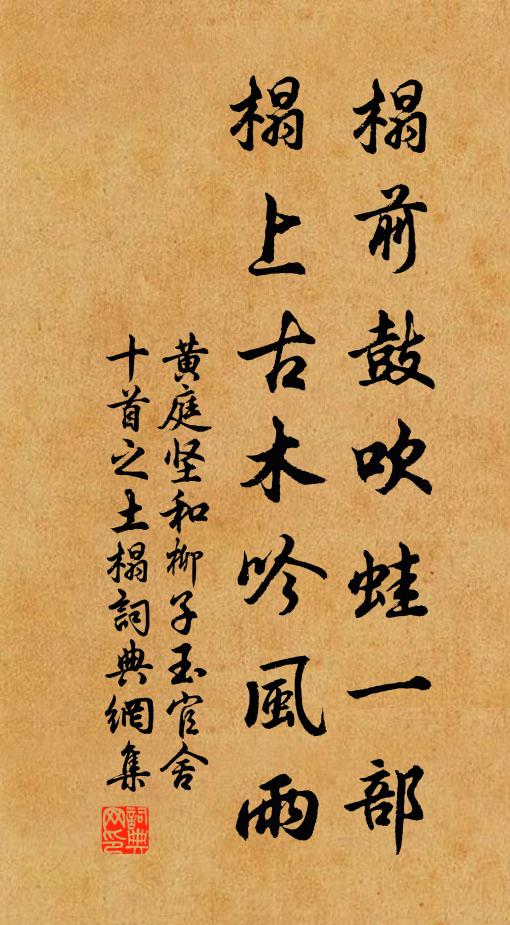 榻前鼓吹蛙一部
榻上古木吟風雨
黄庭坚和柳子玉官舍
十首之土榻詞典網集
詞典
网印